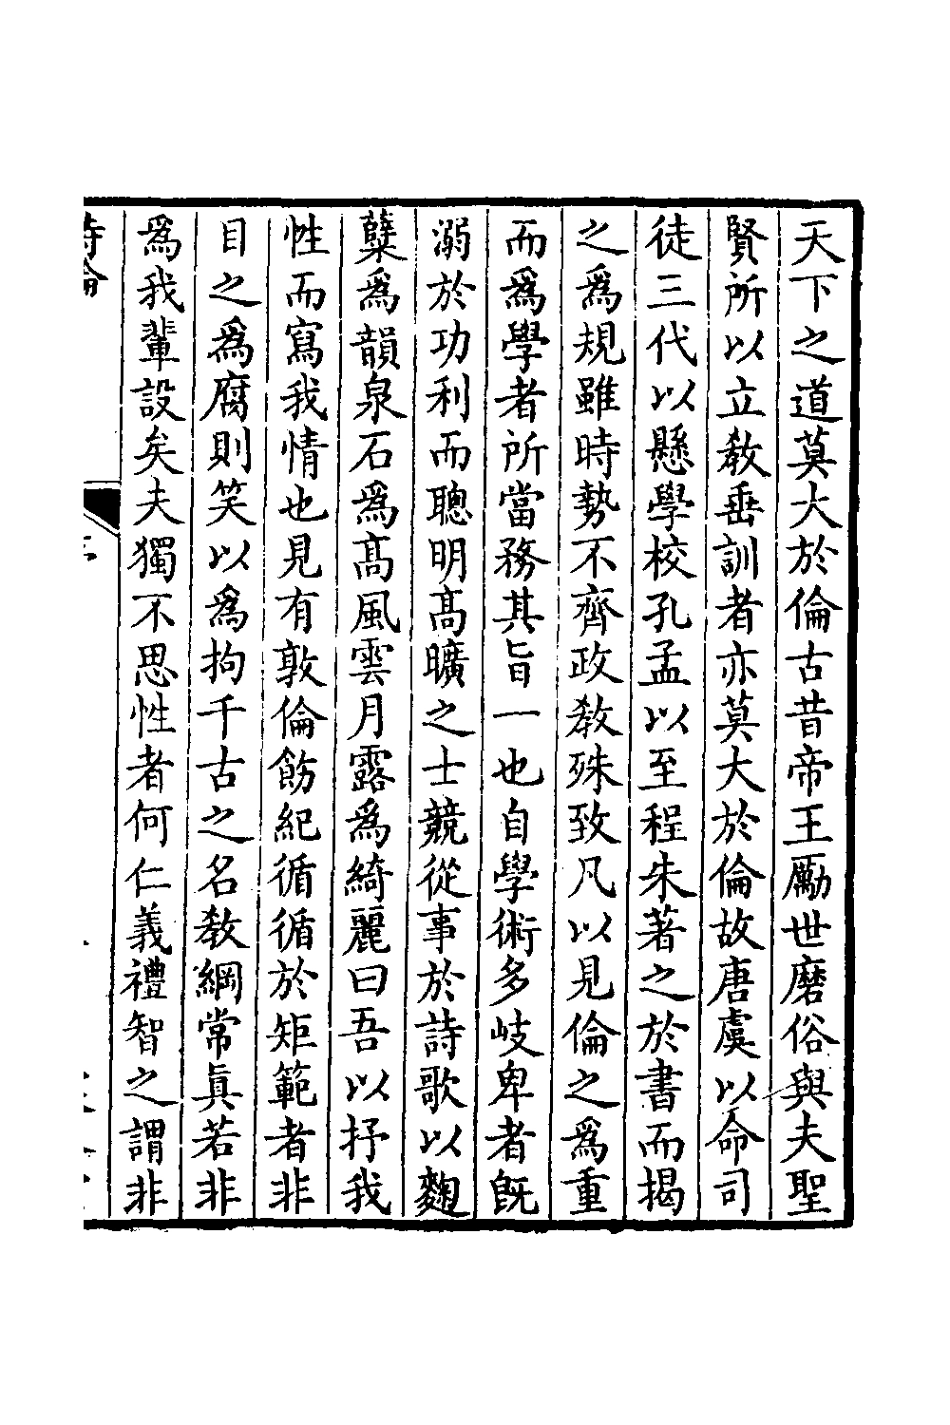 天下之道莫大於倫古昔帝王勵世磨俗與夫聖
賢所以立敎垂訓者亦莫大於倫故唐虞以命司
徒三代以懸學校孔孟以至程朱著之於書而揭
之爲規雖時勢不齊政敎殊致凡以見倫之爲重
而爲學者所當務其旨一也自學術多岐卑者旣
溺於功利而聰明高曠之士競從事於詩歌以麴
糵爲韻泉石爲高風雲月露爲綺麗曰吾以抒我
性而寫我情也見有敦倫飭紀循循於矩範者非
目之爲腐則笑以爲拘千古之名敎綱常眞若非
爲我輩設矣夫獨不思性者何仁義禮智之謂非